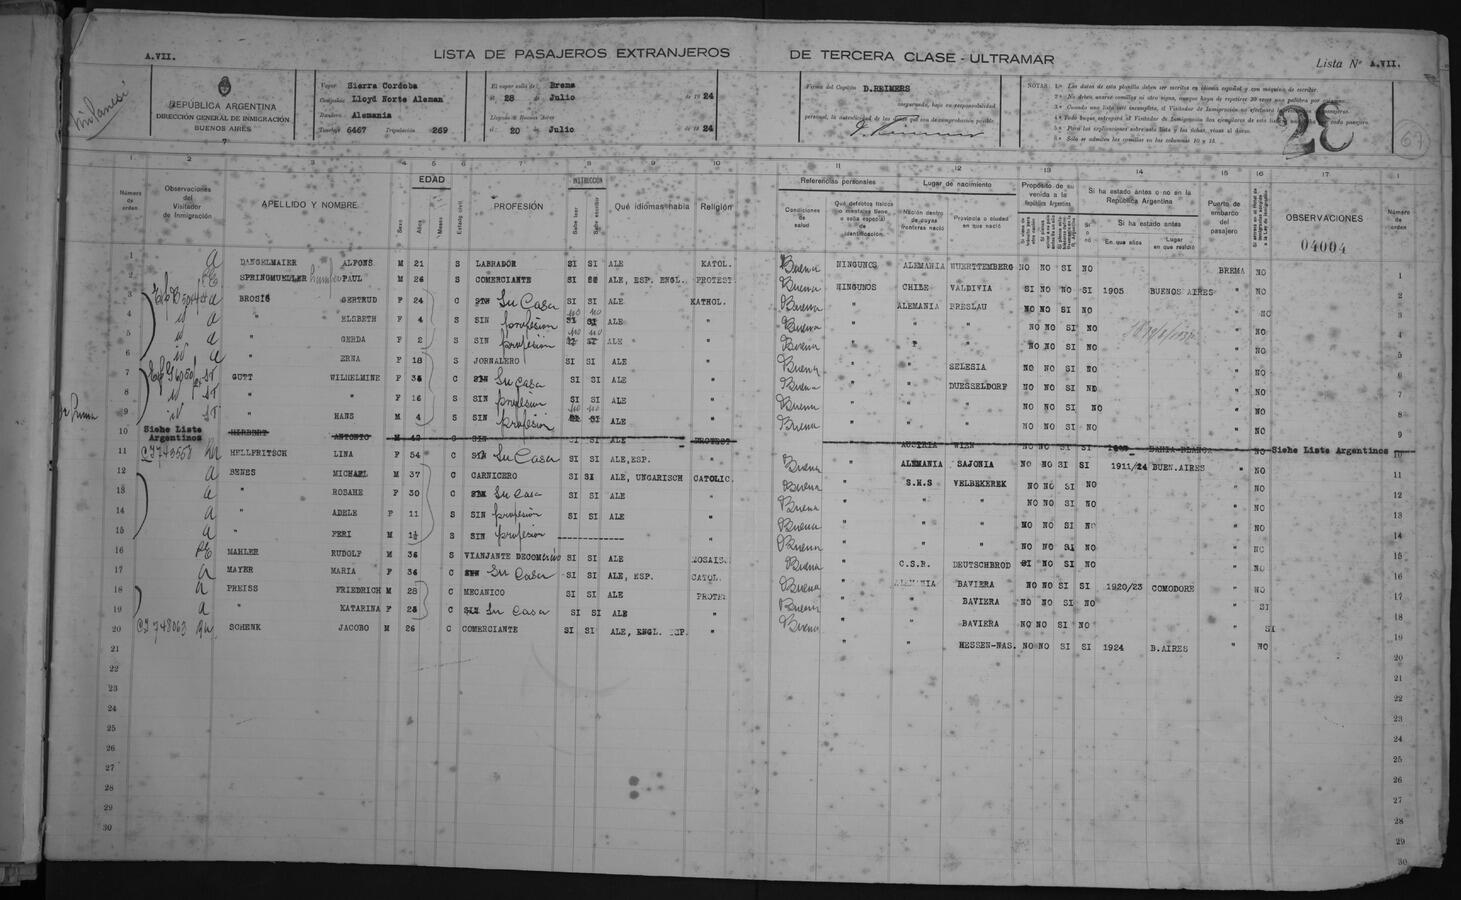 A.VII.
LISTA DE PASAJEROS EXTRANJEROS DE TERCERA CLASE - ULTRAMAR
Lista Nº A.VII.
Milanesi
REPÚBLICA ARGENTINA
DIRECCIÓN GENERAL DE INMIGRACIÓN
BUENOS AIRES
7
Vapor Sierra Cordoba
Compañia Lloyd Norte Aleman
Bandera Alemania
Tonelaje 6467 Tripulación 269
El vapor salió de Brema
el 28 de Julio de 1924
Llegado a Buenos Aires
el 20 de Julio de 1924
Firma del Capitán D.REIMERS
asegurando, bajo su responsabilidad
personal, la autenticidad de los datos que sea de comprobación posible.
NOTAS
28
67
1 2 3 4 5 6 7 8 9 10 11 12 13 14 15 16 17 1
Número de orden
Observaciones del Visitador de Inmigración
APELLIDO Y NOMBRE
Sexo
EDAD
Años
Meses
Estado civil
PROFESIÓN
INSTRUCCIÓN
Sabe leer
Sabe escribir
Qué idiomas habla
Religión
Referencias personales
Condiciones de salud
Qué defectos físicos o mentales tiene o seña especial de identificación
Lugar de nacimiento
Nación dentro de cuyas fronteras nació
Provincia o ciudad en que nació
Propósito de su venida a la República Argentina
Si ha estado antes o no en la República Argentina
Si o nó
Si ha estado antes
En que años
Lugar en que residió
Puerto de embarco del pasajero
OBSERVACIONES
04004
Número de orden
1 a DANGELMAIER ALFONS M 21 S LABRADOR SI SI ALE KATOL. Buena NINGUNOS ALEMANIA WUERTTEMBERG NO NO SI NO BREMA NO 1
2 SPRINGMUELLER PAUL M 26 S COMERCIANTE SI SI ALE, ESP. ENGL. PROTEST. Buena NINGUNOS CHILE VALDIVIA SI NO NO SI 1905 BUENOS AIRES " NO 2
3 a BROSIG GERTRUD F 24 C SIN Su Casa SI SI ALE KATHOL. Buena " ALEMANIA BRESLAU NO NO SI NO " NO 3
4 a " ELSBETH F 4 S SIN profesion SI SI no no ALE " Buena " " " NO NO SI NO " NO 4
5 a " GERDA F 2 S SIN profesion SI SI no no ALE " Buena " " " NO NO SI NO " NO 5
6 a " ERNA F 18 S JORNALERO SI SI ALE " Buena " " SELESIA NO NO SI NO " NO 6
7 GUTT WILHELMINE F 36 C SIN Su Casa SI SI ALE " Buena " " DUESSELDORF NO NO SI NO " NO 7
8 " " F 16 S SIN profesion SI SI ALE " Buena " " " NO NO SI NO " NO 8
9 " HANS M 4 S SIN profesión SI SI no no ALE " Buena " " " NO NO SI NO " NO 9
10 Siehe Liste Argentinos HERBERT ANTONIO M SIN SI SI ALE PROTEST AUSTRIA WIEN NO NO SI SI BAHIA BLANCA " NO Siehe Liste Argentinos 10
11 HELLFRITSCH LINA F 54 C SIN Su Casa SI SI ALE,ESP. " Buena " ALEMANIA SAJONIA NO NO SI SI 1911/24 BUEN.AIRES " NO 11
12 a BENES MICHAEL M 37 C CARNICERO SI SI ALE, UNGARISCH CATOLIC. Buena " S.H.S VELBEKEREK NO NO SI NO " NO 12
13 a " ROSAHE F 30 C SIN Su Casa SI SI ALE " Buena " " " NO NO SI NO " NO 13
14 a " ADELE F 11 S SIN profesión SI SI ALE " Buena " " " NO NO SI NO " NO 14
15 a " FERI M 1½ S SIN profesion ------------ " Buena " " " NO NO SI NO " NO 15
16 MAHLER RUDOLF M 36 S VIANJANTE DECOMercio SI SI ALE MOSAIS. Buena " C.S.R. DEUTSCHBROD SI NO SI NO " NO 16
17 a MAYER MARIA F 36 C SIN Su Casa SI SI ALE, ESP. CATOL. Buena " ALEMANIA BAVIERA NO NO SI SI 1920/23 COMODORE " NO 17
18 a PREISS FRIEDRICH M 28 C MECANICO SI SI ALE PROTES Buena " " BAVIERA NO NO SI NO " SI 18
19 a " KATARINA F 25 C SIN Su Casa SI SI ALE " Buena " " BAVIERA NO NO SI NO " SI 19
20 SCHENK JACOBO M 26 C COMERCIANTE SI SI ALE, ENGL. ESP. " " " HESSEN-NAS. NO NO SI SI 1924 B.AIRES " NO 20
21 21
22 22
23 23
24 24
25 25
26 26
27 27
28 28
29 29
30 30